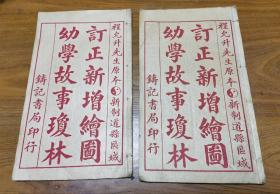 程允升先生原本 新制道縣區域
訂正新增繪圖
幼學故事瓊林
鑄記書局印行
程允升先生原本 新制道縣區域
訂正新增繪圖
幼學故事瓊林
鑄記書局印行